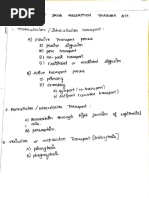 DRUG ABSORPTION THROUGH GIT
1. Transcellular / Intracellular transport :
A) Passive transport process
a) passive diffusion
b) pore transport
c) ion-pair transport
d) facilitated or mediated diffusion
B) Active transport process
a) primary
b) secondary
i) symport (co-transport)
ii) antiport (counter transport)
2. Paracellular / Intercellular Transport :
a) Permeation through tight junctions of epithelial
cells
b) Persorption
3. Vesicular or Corpuscular Transport (Endocytosis)
a) pinocytosis
b) phagocytosis